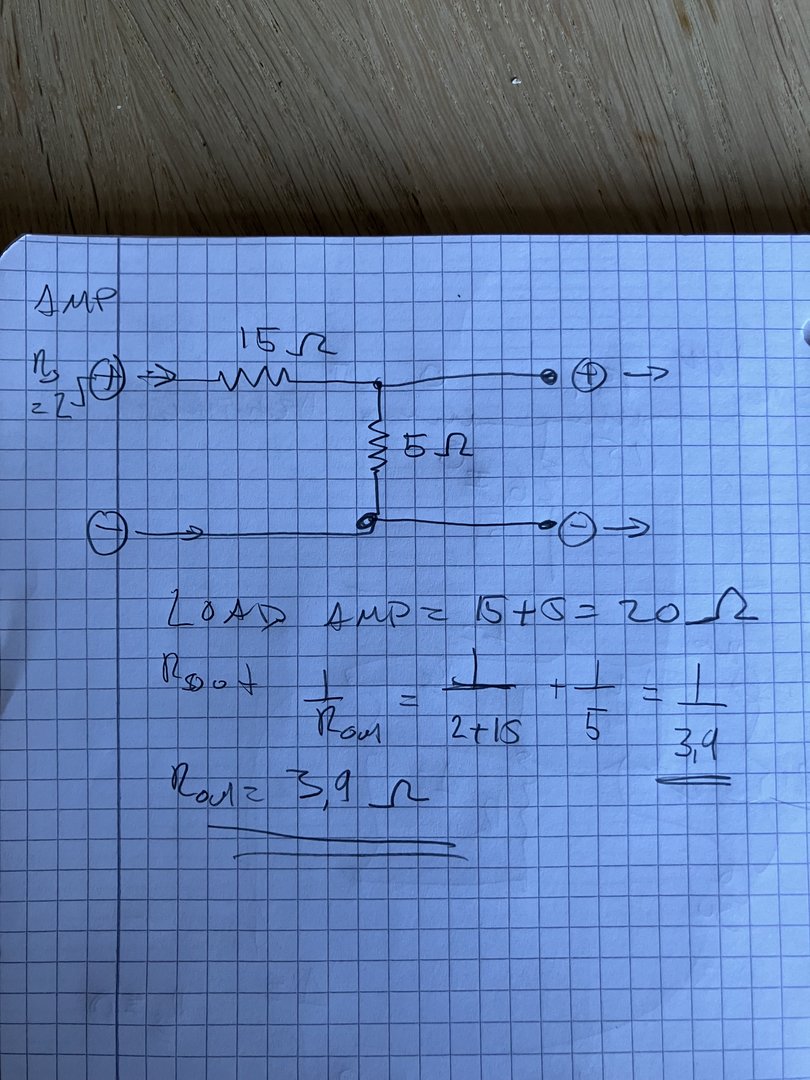 AMP
15 Ω
Rs
= 2
+ → +
5 Ω
- → -
LOAD AMP = 15+5 = 20 Ω
Rout 1/Rout = 1/2+15 + 1/5 = 1/3,9
Rout = 3,9 Ω